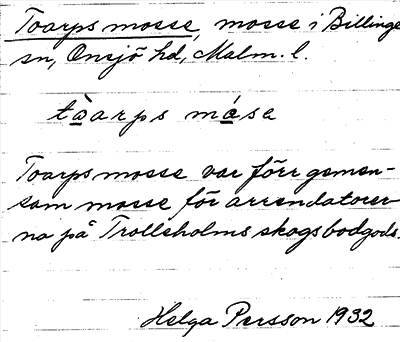 Toarps mosse, mosse i Billinge
sn, Onsjö hd, Malm. l.
tòarps mása
Toarps mosse var förr gemen-
sam mosse för arrendatorer-
na på Trolleholms skogsbodgods.
Helga Persson 1932